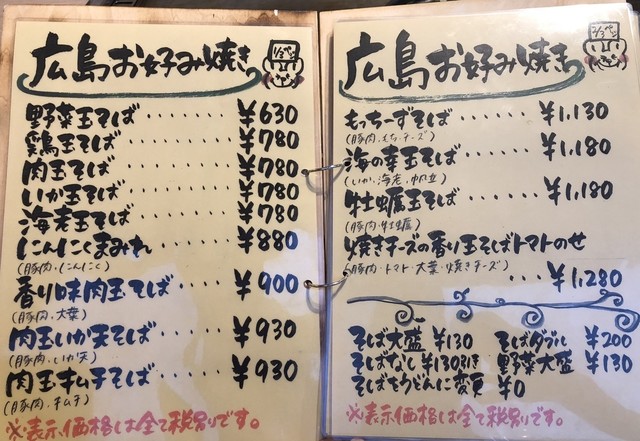 広島お好み焼き
野菜玉そば‥‥‥¥630
鶏玉そば‥‥‥¥780
肉玉そば‥‥‥¥780
いか玉そば‥‥‥¥780
海老玉そば‥‥‥¥780
にんにくまみれ‥‥‥¥880
(豚肉、にんにく)
香り味肉玉そば‥‥‥¥900
(豚肉、大葉)
肉玉いか天そば‥‥‥¥930
(豚肉、いか天)
肉玉キムチそば‥‥‥¥930
(豚肉、キムチ)
※表示価格は全て税別です。
広島お好み焼き
もっちーずそば‥‥‥¥1,130
(豚肉、もち、チーズ)
海の幸玉そば‥‥‥¥1,180
(いか、海老、帆立)
牡蠣玉そば‥‥‥¥1,180
(豚肉、牡蠣)
焼きチーズの香り玉そばトマトのせ
(豚肉・トマト・大葉・焼きチーズ)
‥‥¥1,280
そば大盛 ¥130 そばダブル ¥200
そばなし ¥130引き 野菜大盛 ¥130
そばをうどんに変更 ¥0
※表示価格は全て税別です。